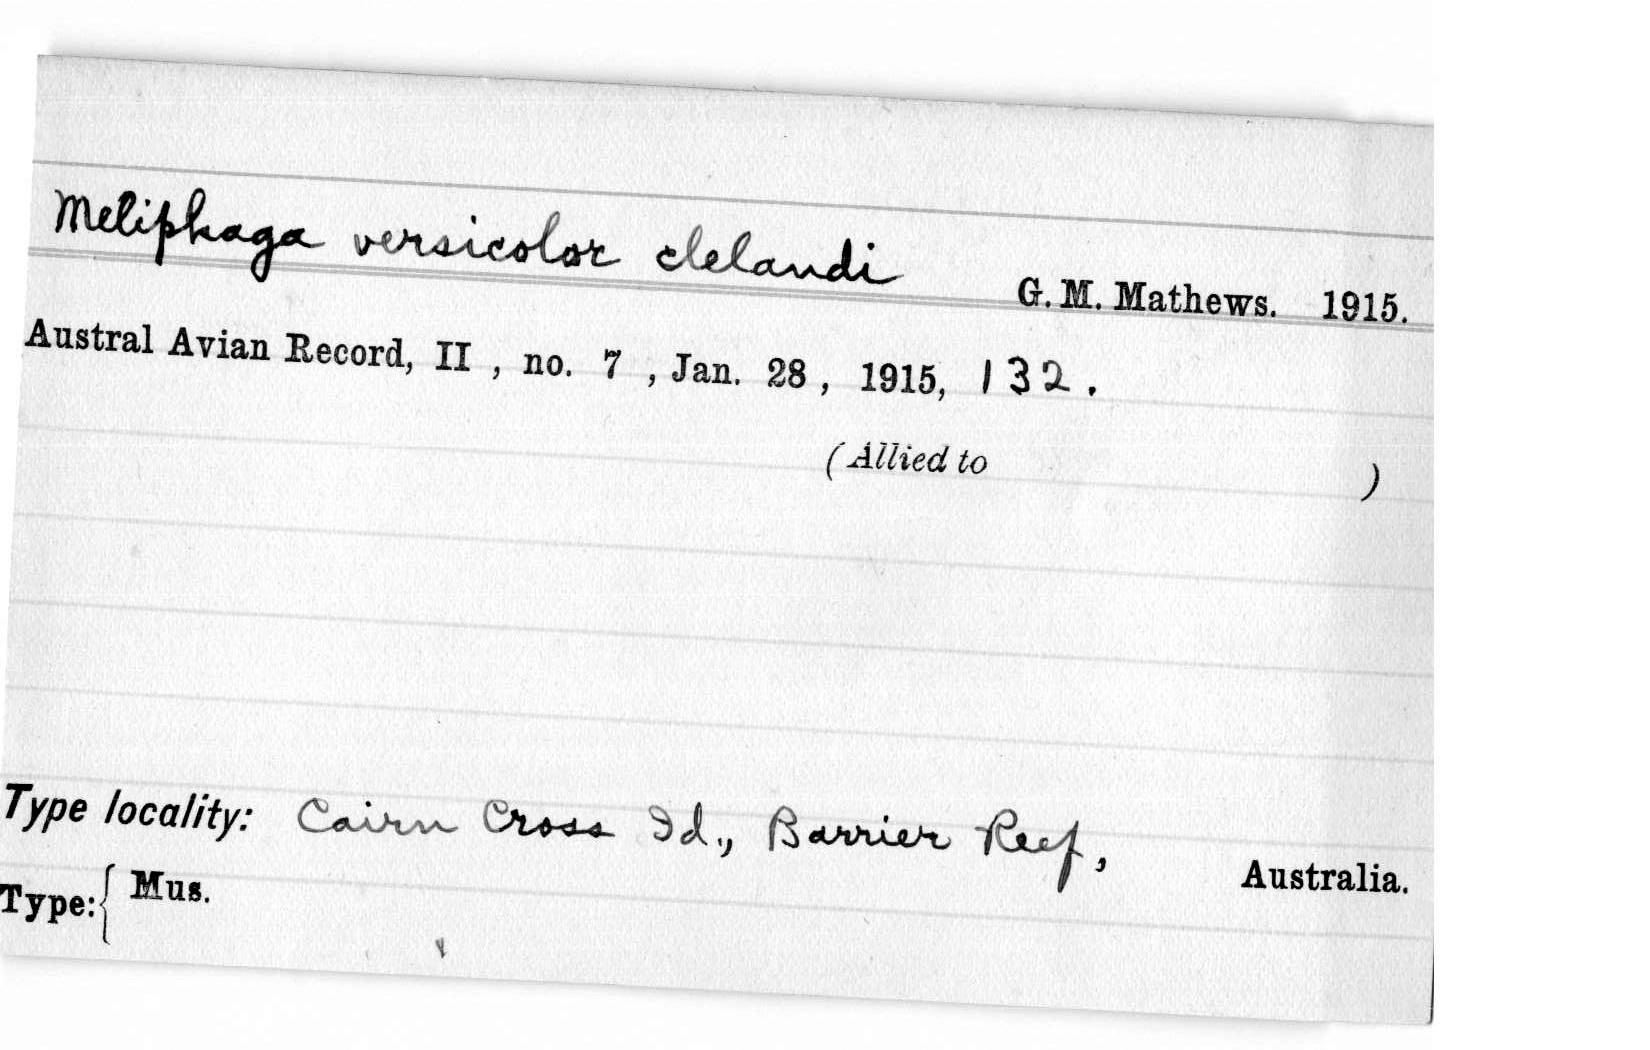 Meliphaga versicolor clelandi G. M. Mathews. 1915.
Austral Avian Record, II , no. 7 , Jan. 28 , 1915, 132.
( Allied to )
Type locality: Cairn Cross Id., Barrier Reef, Australia.
Type: { Mus.